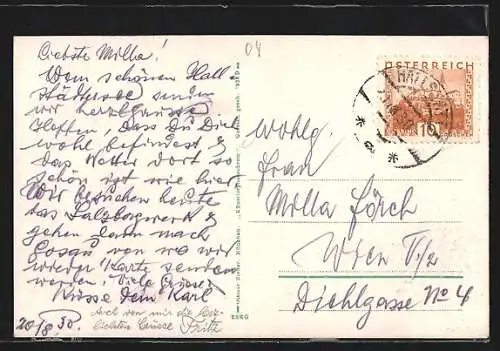 04
Liebste Milla!
Vom schönen Hall
stättersee senden
wir herzl. Grüsse.
Hoffen, dass Du Dich
wohl befindest &
das Wetter dort so
schön ist wie hier
Wir besuchen heute
das Salzbergwerk &
gehen dann nach
Gosau von wo wir
wieder Karte senden
werden. Viele Grüsse
Küsse Dein Karl
Auch von mir die herz-
lichsten Grüsse Fritz
20/8. 30.
ÖSTERREICH
HALLSTATT
10
Wohlg.
Frau
Milla Förch
Wien V/2
Diehlgasse No 4